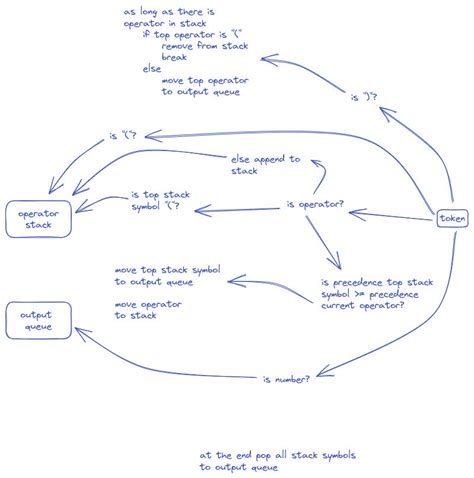 as long as there is
operator in stack
if top operator is "("
remove from stack
break
else
move top operator
to output queue
is ")"?
is "("?
else append to
stack
is top stack
symbol "("?
is operator?
token
operator
stack
move top stack symbol
to output queue
is precedence top stack
symbol >= precedence
current operator?
move operator
to stack
output
queue
is number?
at the end pop all stack symbols
to output queue